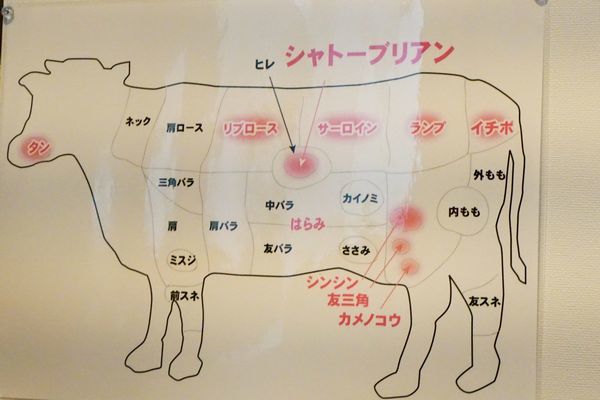 シャトーブリアン
ヒレ
ネック
肩ロース
リブロース
サーロイン
ランプ
イチボ
タン
三角バラ
外もも
中バラ
カイノミ
内もも
肩
肩バラ
はらみ
友バラ
ささみ
ミスジ
シンシン
友三角
カメノコウ
前スネ
友スネ